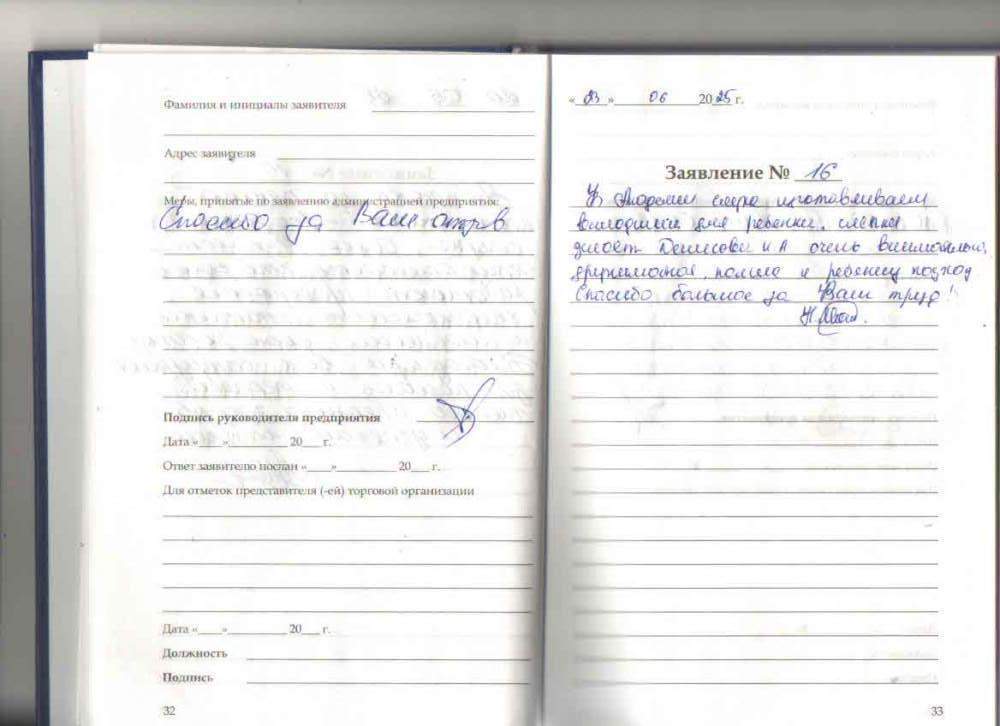 Фамилия и инициалы заявителя
Адрес заявителя
Меры, принятые по заявлению администрацией предприятия:
Спасибо за Ваш отзыв
Подпись руководителя предприятия
Дата «___»__________ 20___ г.
Ответ заявителю послан «___»__________ 20___ г.
Для отметок представителя (-ей) торговой организации
Дата «___»__________ 20___ г.
Должность
Подпись
32
«23» 06 2025 г.
Заявление № 16
В Академии слуха изготавливаем
вкладыши для ребенка, слепки
делает Денисова И.А очень внимательно,
нашла к ребенку подход
Спасибо большое за Ваш труд!
33